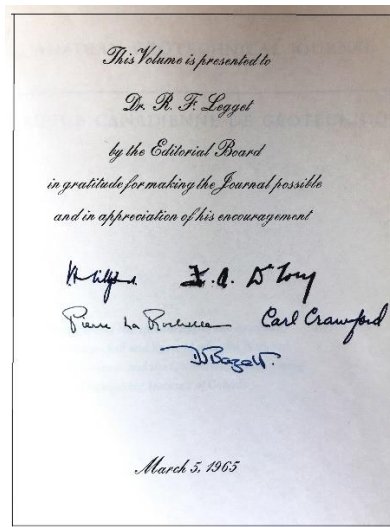 This Volume is presented to
Dr. R. F. Legget
by the Editorial Board
in gratitude for making the Journal possible
and in appreciation of his encouragement
Pierre La Rochelle Carl Crawford
March 5, 1965